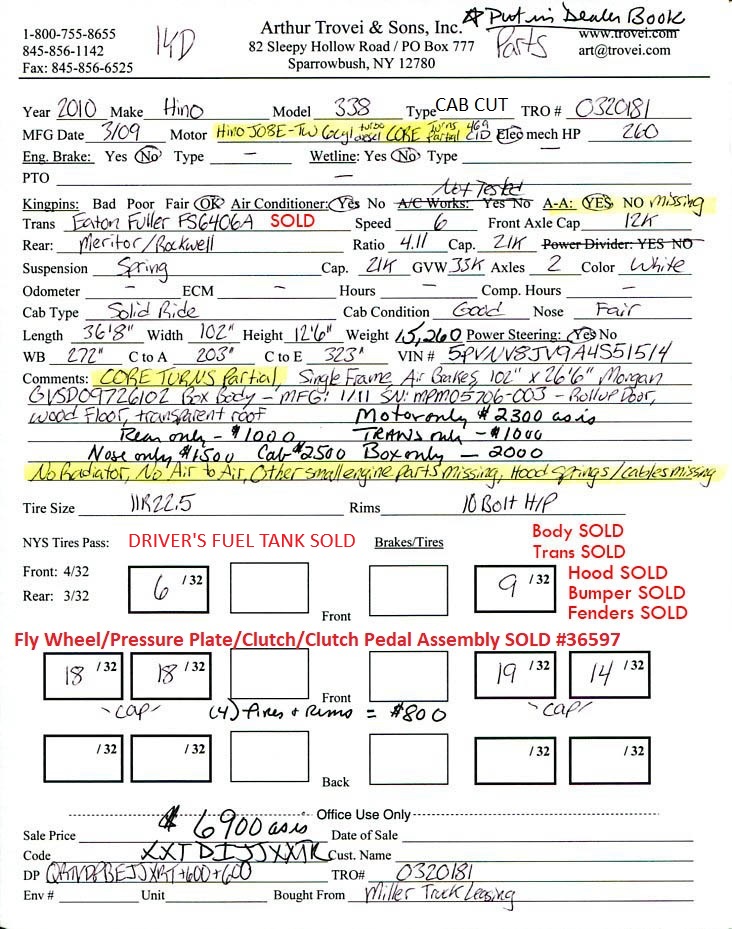 1-800-755-8655
845-856-1142
Fax: 845-856-6525
14D
Arthur Trovei & Sons, Inc.
82 Sleepy Hollow Road / PO Box 777
Sparrowbush, NY 12780
Put in Dealer Book
Parts
www.trovei.com
art@trovei.com
Year 2010 Make Hino Model 338 Type CAB CUT TRO # 0320181
MFG Date 3/09 Motor Hino J08E-TW 6cyl turbo diesel CORE Turns Partial 469 CID Elec mech HP 260
Eng. Brake: Yes No Type — Wetline: Yes No Type —
PTO —
Not Tested
Kingpins: Bad Poor Fair OK Air Conditioner: Yes No A/C Works: Yes No A-A: YES NO missing
Trans Eaton Fuller FS6406A SOLD Speed 6 Front Axle Cap 12K
Rear: Meritor/Rockwell Ratio 4.11 Cap. 21K Power Divider: YES NO
Suspension Spring Cap. 21K GVW 33K Axles 2 Color White
Odometer – ECM – Hours – Comp. Hours –
Cab Type Solid Ride Cab Condition Good Nose Fair
Length 36'8" Width 102" Height 12'6" Weight 15,260 Power Steering: Yes No
WB 272" C to A 203" C to E 323" VIN # 5PVNV8JV9A4S51514
Comments: CORE TURNS Partial, Single Frame Air Brakes, 102" x 26'6" Morgan
GVSD09726102 Box Body - MFG: 1/11 SN: MPM05706-003 - Rollup Door,
wood Floor, transparent roof Motor only $2300 as is
Rear only - $1000 TRANS only - $1000
Nose only $1500 Cab $2500 Box only — 2000
No Radiator, No Air to Air, Other small engine parts missing, Hood springs/cables missing
Tire Size 11R22.5 Rims 10 Bolt H/P
NYS Tires Pass: DRIVER'S FUEL TANK SOLD Brakes/Tires
Body SOLD
Trans SOLD
Hood SOLD
Bumper SOLD
Fenders SOLD
Front: 4/32
Rear: 3/32
6 /32 9 /32
Front
Fly Wheel/Pressure Plate/Clutch/Clutch Pedal Assembly SOLD #36597
18 /32 18 /32 19 /32 14 /32
Front
-cap- (4) tires + Rims = $800 -cap-
/32 /32 /32 /32
Back
Office Use Only
Sale Price $6900 as is Date of Sale
Code XXTDIJJXXTR Cust. Name
DP TRO# 0320181
Env # Unit Bought From Miller Truck Leasing